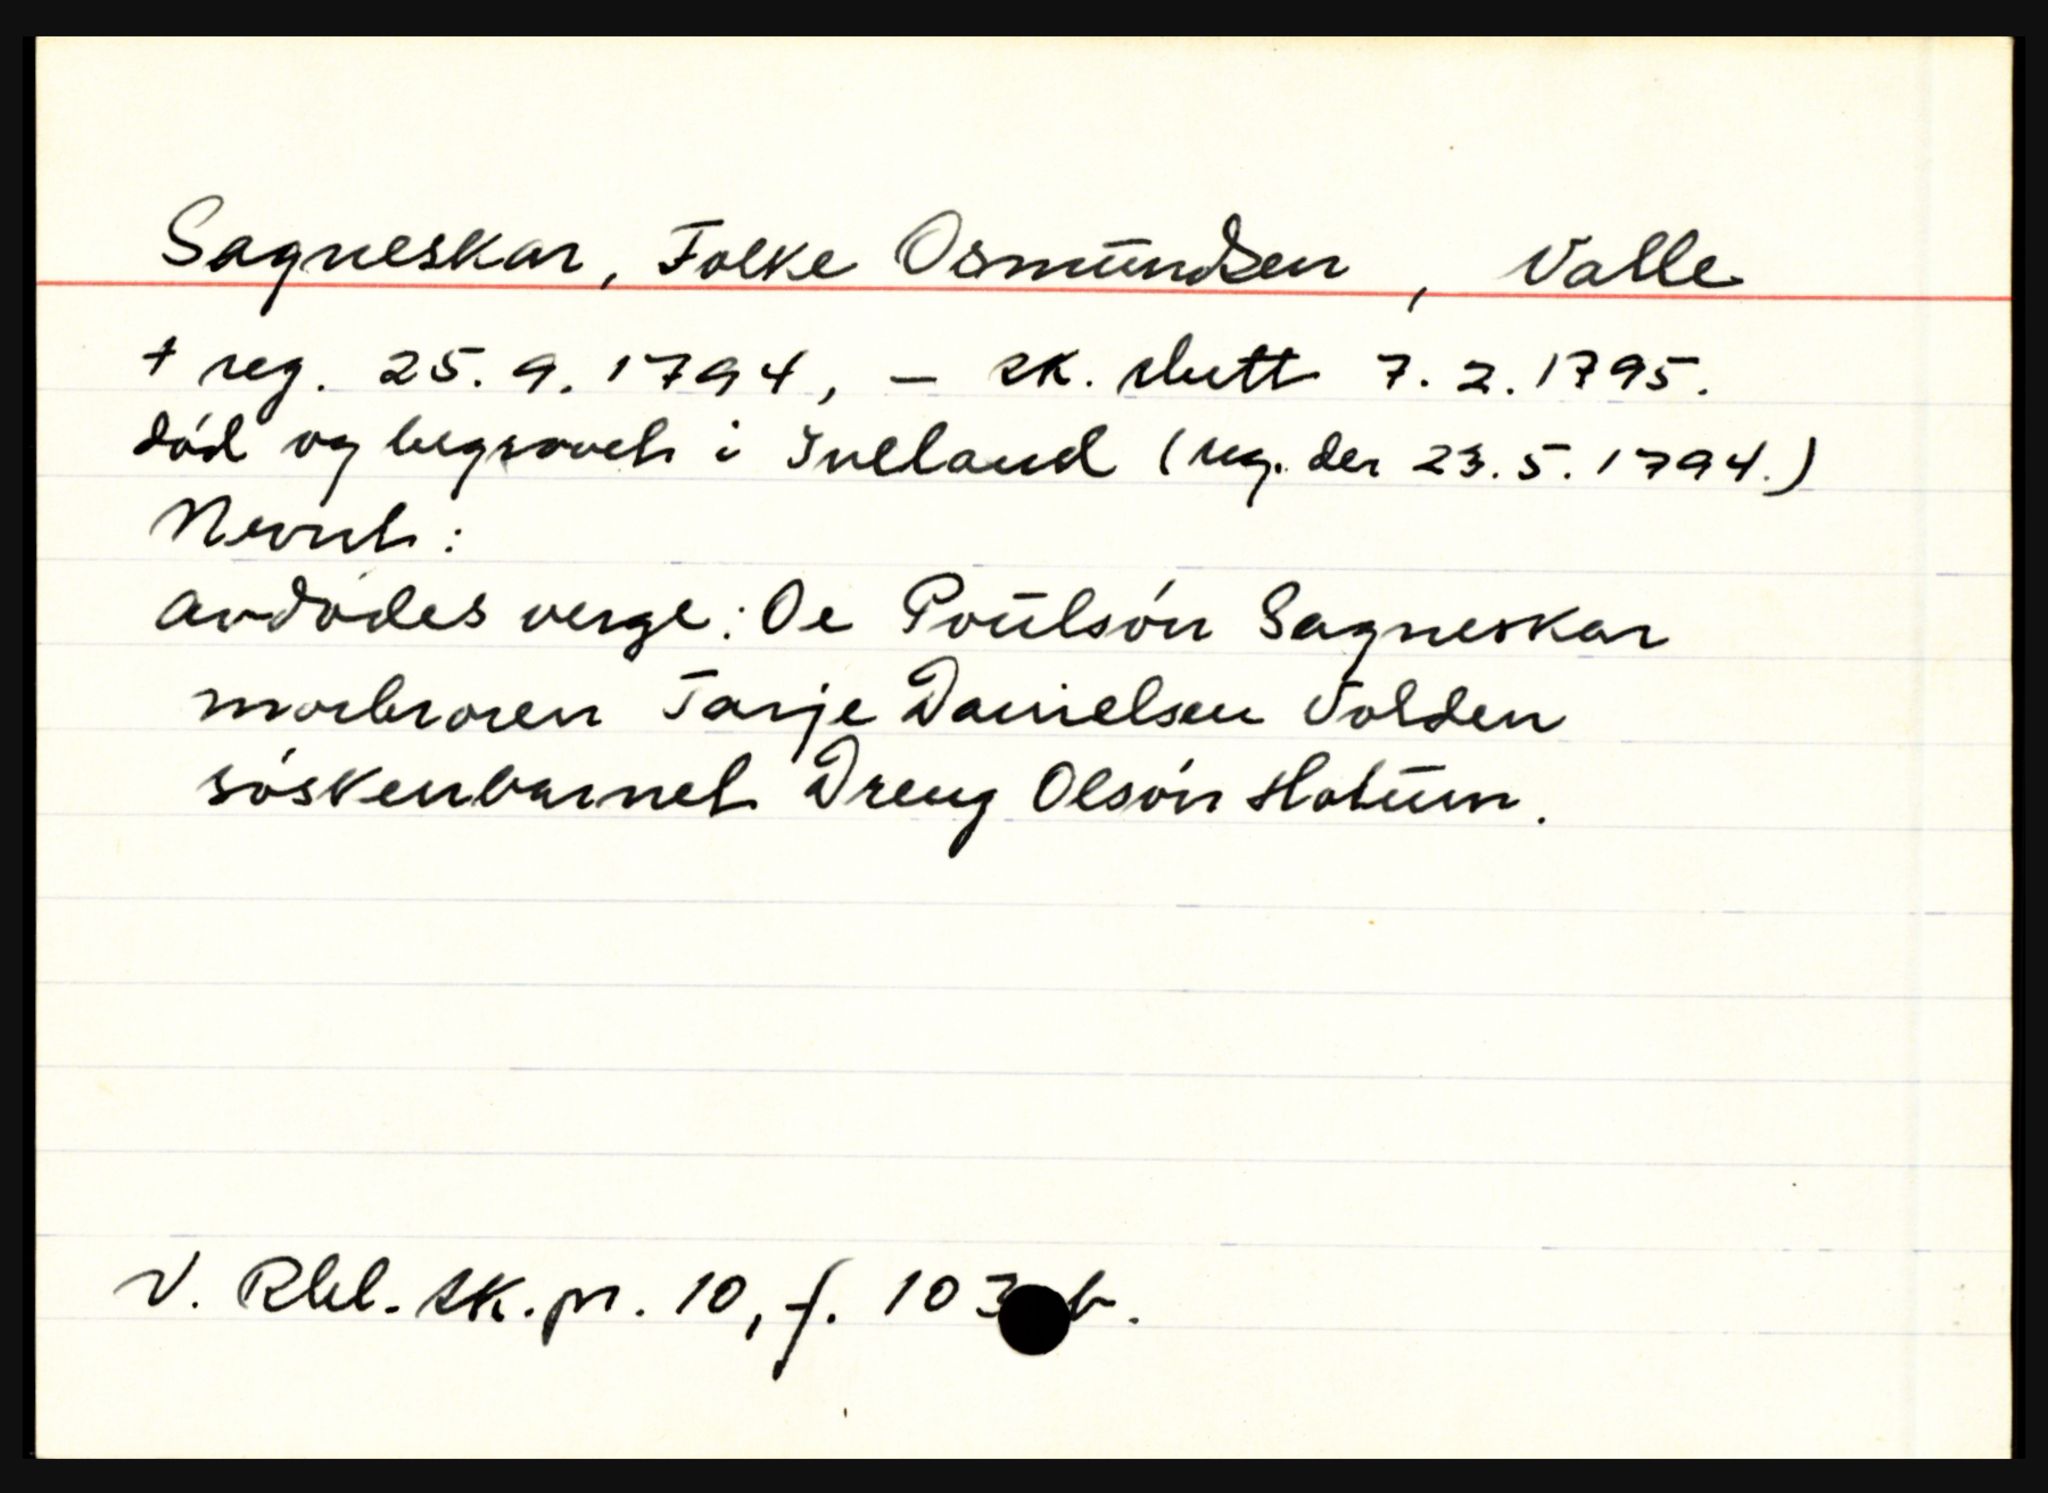 Sagneskar, Folke Osmundsen, Valle
† reg. 25.9.1794, – sk. slutt 7.2.1795.
død og begravet i Iveland (reg. der 23.5.1794.)
Nevnt:
avdødes verge: Oe Poulsón Sagneskar
morbroren Tarje Danielsen Volden
søskenbarnet Dreng Olsón Hotum.
V. Rbl. sk.pr. 10, f. 103 b.